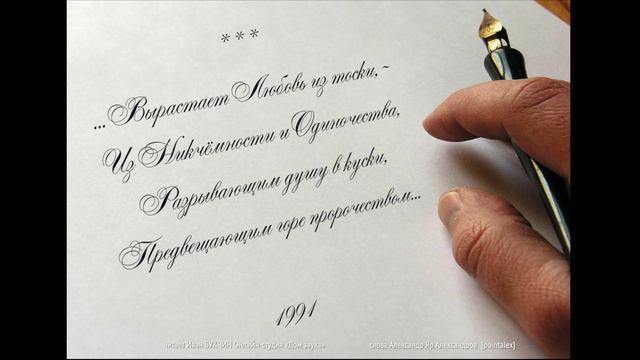 * * *
... Вырастает Любовь из тоски,~
Из Никчёмности и Одиночества,
Разрывающим душу в куски,
Предвещающим горе пророчеством...
1991
читает Иван БУКЧИН Онлайн-студия «Дом звука» слова Александр Яр Александров [pointalex]